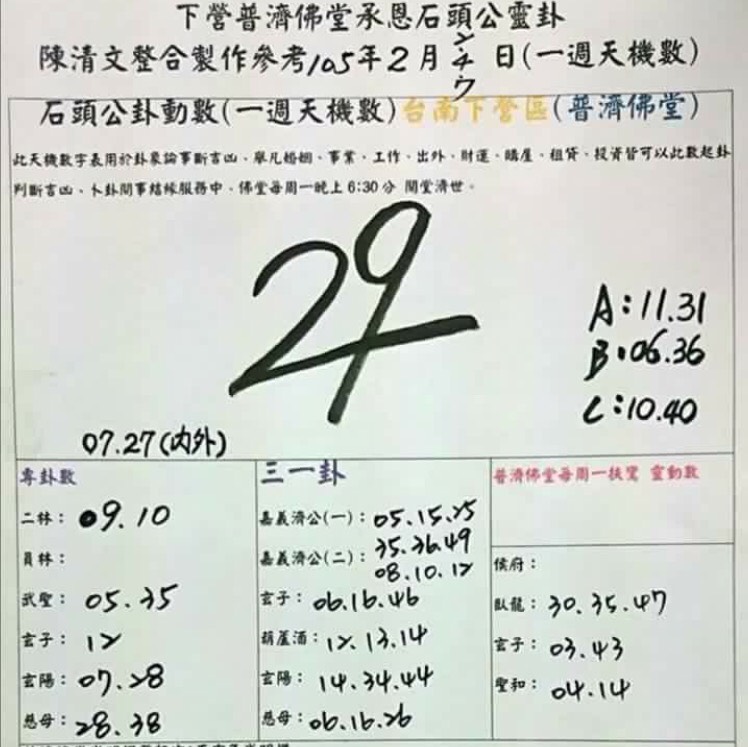 下營普濟佛堂承恩石頭公靈卦
陳清文整合製作參考105年2月 2/4/9 日(一週天機數)
石頭公卦動數(一週天機數)台南下營區(普濟佛堂)
此天機數字表用於卦象論事斷吉凶、舉凡婚姻、事業、工作、出外、財運、購屋、租貸、投資皆可以此數起卦
判斷吉凶、卜卦問事結緣服務中、佛堂每周一晚上6:30分 開堂濟世。
29
A:11.31
B:06.36
C:10.40
07.27(内外)
專卦數
二林: 09.10
員林:
武聖: 05.35
玄子: 12
玄陽: 07.28
慈母: 28.38
三一卦
嘉義濟公(一): 05.15.25
35.36.49
嘉義濟公(二): 08.10.12
玄子: 06.16.46
葫蘆酒: 12.13.14
玄陽: 14.34.44
慈母: 06.16.26
普濟佛堂每周一扶鸞 靈動數
侯府:
臥龍: 30.35.47
玄子: 03.43
聖和: 04.14